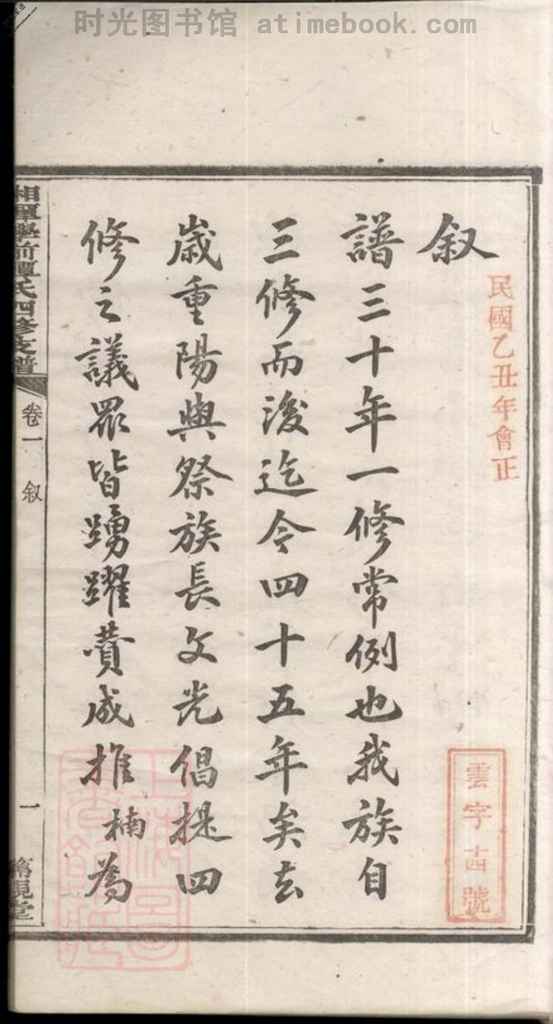 时光图书馆 atimebook.com
民國乙丑年會正
雲字古號
叙
譜三十年一修常例也我族自
三修而後迄今四十五年矣去
歲重陽與祭族長文光倡提四
修之議眾皆踴躍贊成推楠為
氏四修支譜
卷一 叙
一